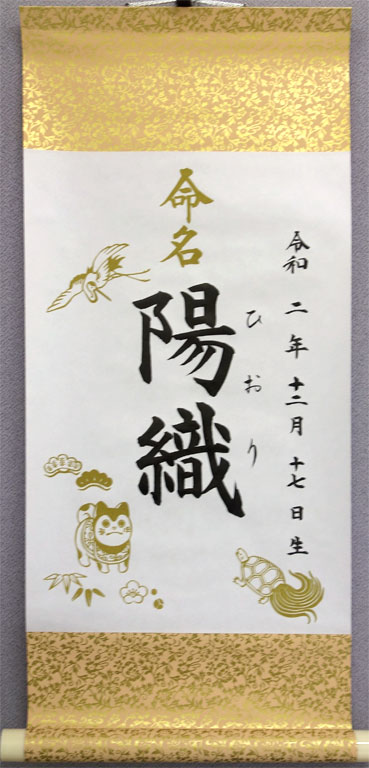 令和二年十二月十七日生
命名
陽織
ひおり